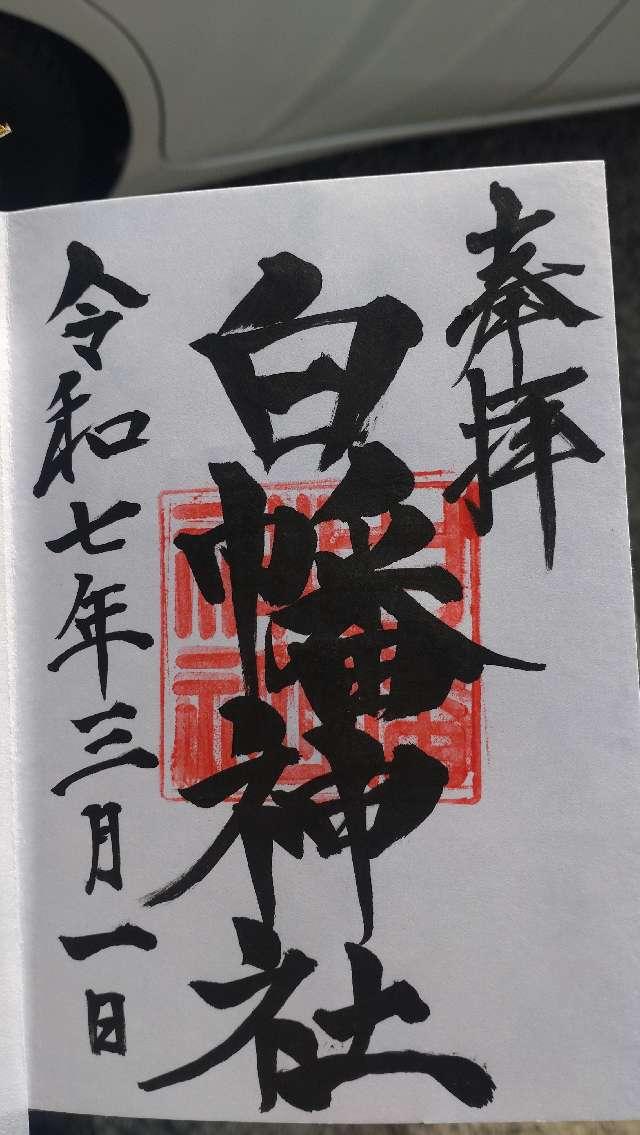 奉拝
白幡神社
令和七年三月一日